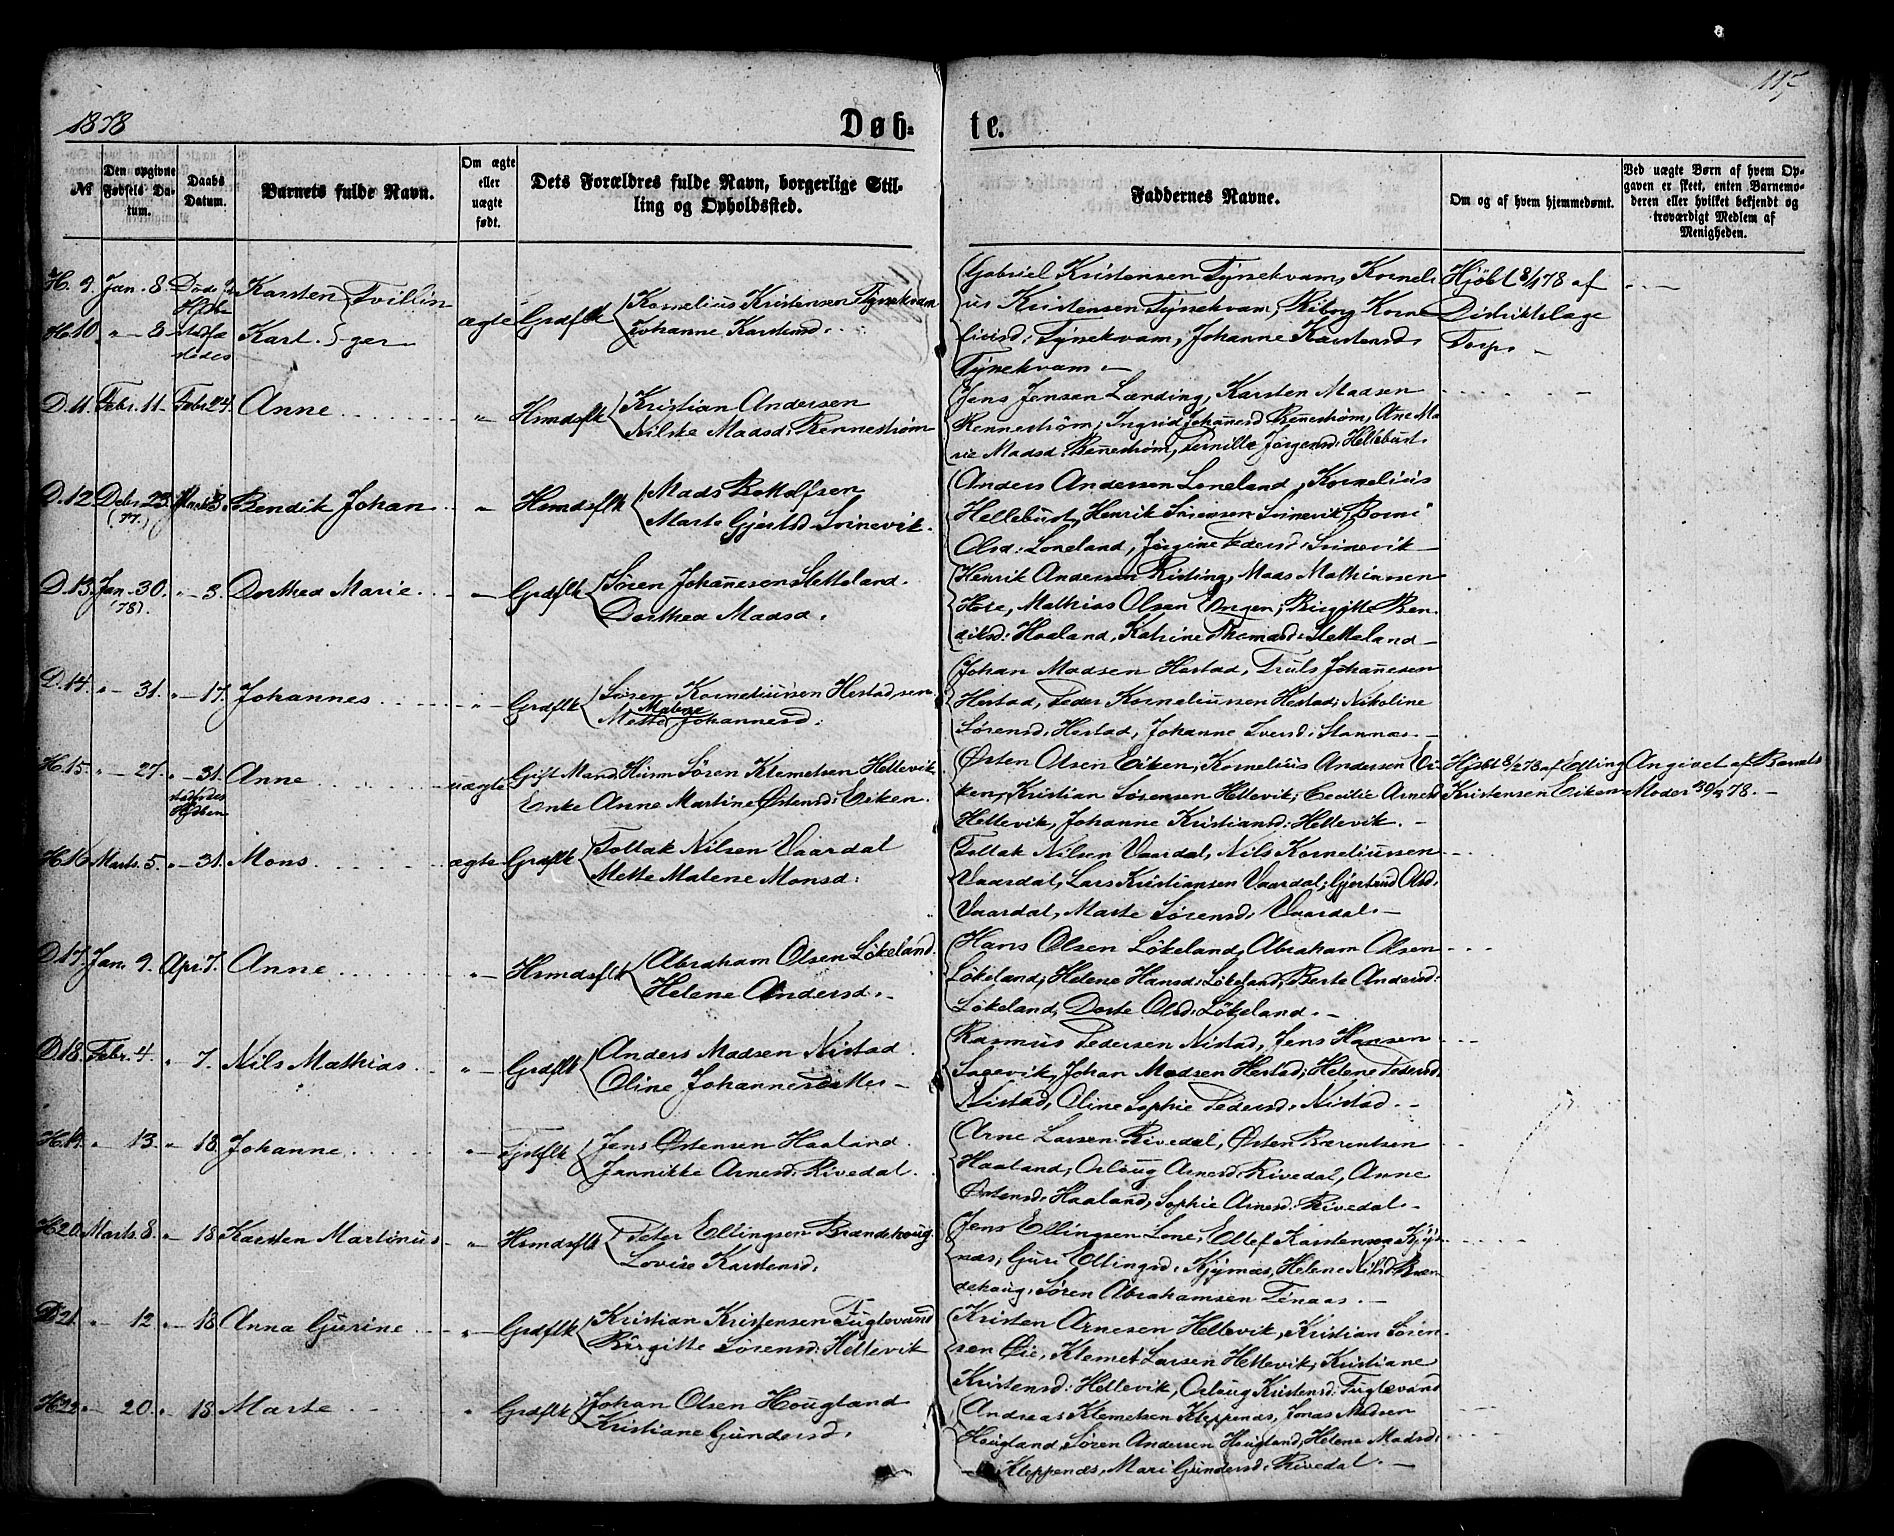 115
1878
Døb-
te.
№
Den opgivne Fødsels Datum.
Daabs Datum.
Barnets fulde Navn.
Om ægte eller uægte født.
Dets Forældres fulde Navn, borgerlige Stilling og Opholdssted.
Faddernes Navne.
Om og af hvem hjemmedømt.
Ved uægte Børn af hvem Opgaven er skett, enten Barnemoderen eller hvilket bekjendt og troværdigt Medlem af Menigheden.
H. 9. Jan. 8. Karsten Tvillin
H. 10. " - 8 Karl. ger
ægte Grdflk Kornelius Kristensen Tysekvam
Johanne Karstensd.
Gabriel Kristensen Tynekvam, Korneli
us Kristensen Tynekvam, Korne
liusd: Tynekvam, Johanne Karstensd.
Tynekvam. -
Hjdbt 8/1 78 af
Distriktslæge
Torp. -
D. 11. Febr. 11 - Febr. 24. Anne
" - Hsmdsflk Kristian Andersen
Nilske Madsd: Rennestrøm
Jens Jensen Lænding, Karsten Madsen
Rennestrøm, Ingrid Johansd Rennestrøm, Ane Ma
rie Madsd: Rennestrøm, Pernille Jørgensd: Hellebust.
D. 12 Debr 23. (77.) Marts 3. Bendik Johan
" Hsmdsflk Mads Bottolfsen
Marte Gjertsd Svinevik.
Anders Andersen Loneland, Kornelius
Hellebust, Henrik Svinevik,
Olsd: Loneland, Jørgine Pedersd: Svinevik
D. 13. Jan. 30. (78). " - 3. Dorthea Marie
" - Grdflk Søren Johanesen Stetteland.
Dorthea Madsd.
Henrik Andersen Risting, Mads Mathiassen
Mathias Olsen Birgitte Ben
diksd: Haaland, Katrine Thomasd: Stetteland -
D. 14. " - 31. " - 17. Johannes
" - Grdflk Søren Korneliussen Herstad,
Mette Malene Johannesd:
Johan Madsen Herstad, Truls Johanesen
Herstad, Peder Korneliussen Herstad; Nikoline
Sørensd: Herstad, Johanne Iversd: Stannas. -
H. 15. " - 27. " - 31. Anne
uægte Gift Mand, Søren Klemetsen Hellevik.
Enke Anne Martine Østensd: Eiken.
Østen Olsen Eiken, Kornelius Andersen Ei
ken, Kristian Sørensen Hellevik; Cecilie Arnesd
Hellevik, Johanne Kristiansd: Hellevik. -
Hjdbt 8/2 78 af Elling
Kristensen Eiken
Angivet af Barnets
Moder 30/3 78. -
H. 16 Marts 5. " - 31. Mons
ægte Grdflk Tollak Nilsen Vaardal
Mette Malene Monsd:
Tollak Nilsen Vaardal, Nils Korneliussen
Vaardal, Lars Kristiansen Vaardal; Gjertrud Olsd:
Vaardal, Marte Sørensd: Vaardal. -
D. 17. Jan. 9. Apr. 7. Anne
" - Hsmdsflk Abraham Olsen Løkeland.
Helene Andersd. -
Hans Olsen Løkeland, Abraham Olsen
Løkeland; Helene Hansd: Løkeland, Berte Andersd:
Løkeland, Dorte Olsd: Løkeland. -
D. 18. Febr. 4. " 7. Nils Mathias
" - Grdflk Anders Madsen Nistad.
Oline Johannesdatter -
Rasmus Pedersen Nistad, Jens Hansen
Sagevik, Johan Madsen Herstad; Helene Pedersd:
Nistad, Oline Sophie Pedersd: Nistad. -
H. 19. " 13. " 18 Johanne
" - Jens Østensen Haaland.
Jannikke Arnesd: Rivedal.
Arne Larsen Rivedal, Østen Bærentsen
Haaland, Oslaug Arnesd: Rivedal, Anne
Østensd: Haaland, Sophie Arnesd: Rivedal. -
H. 20. Marts. 8. " - 18 Karsten Martinus
" - Hsmdsflk Peter Ellingsen Brandshoug.
Lovise Karstensd:
Jens Ellingsen Lone, Ellef Karstensen
næs; Guri Ellingsd: Helene Nilsd Bran
dshoug, Søren Abrahamsen Tenaas. -
D. 21. " - 12 " - 18. Anna Gurine
" - Grdflk Kristian Kristensen Fuglevand
Birgitte Sørensd: Hellevik
Kristen Arnesen Hellevik, Kristian Søren
sen Øie, Klemet Larsen Hellevik, Kristiane
Kristensd: Hellevik, Oslaug Kristensd: Fuglevand
H. 22. " - 20. " - 18 Marte
" Grdflk Johan Olsen Hougland
Kristiane Gundersd.
Andreas Klemetsen Kleppenæs, Jonas Madsen
Hougland, Søren Andersen Hougland, Helene Madsd:
Kleppenæs, Mari Gundersd: Rivedal. -